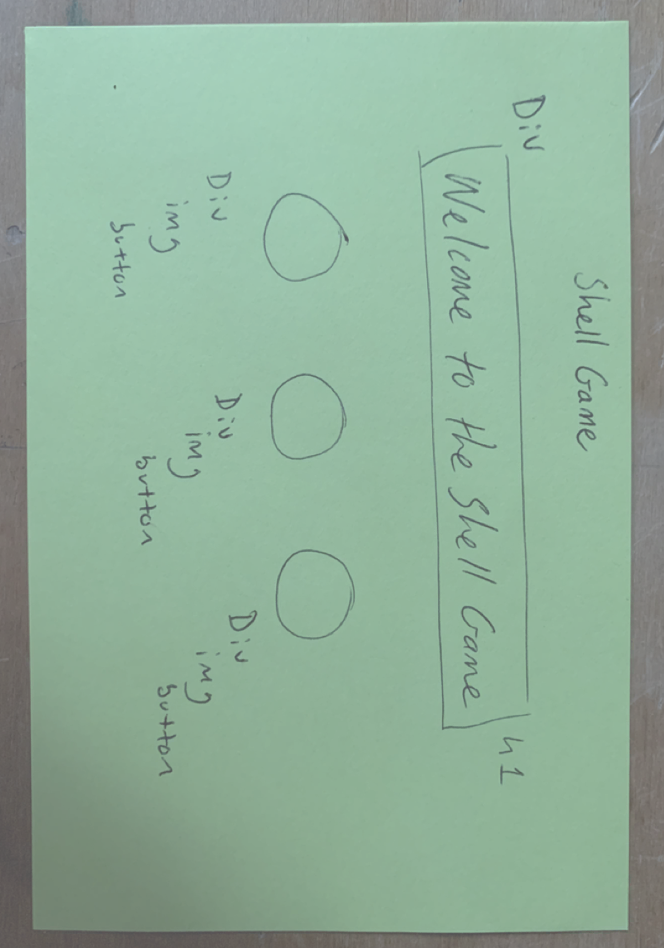 Shell Game
Div
Welcome to the Shell Game
h1
Div
img
button
Div
img
button
Div
img
button